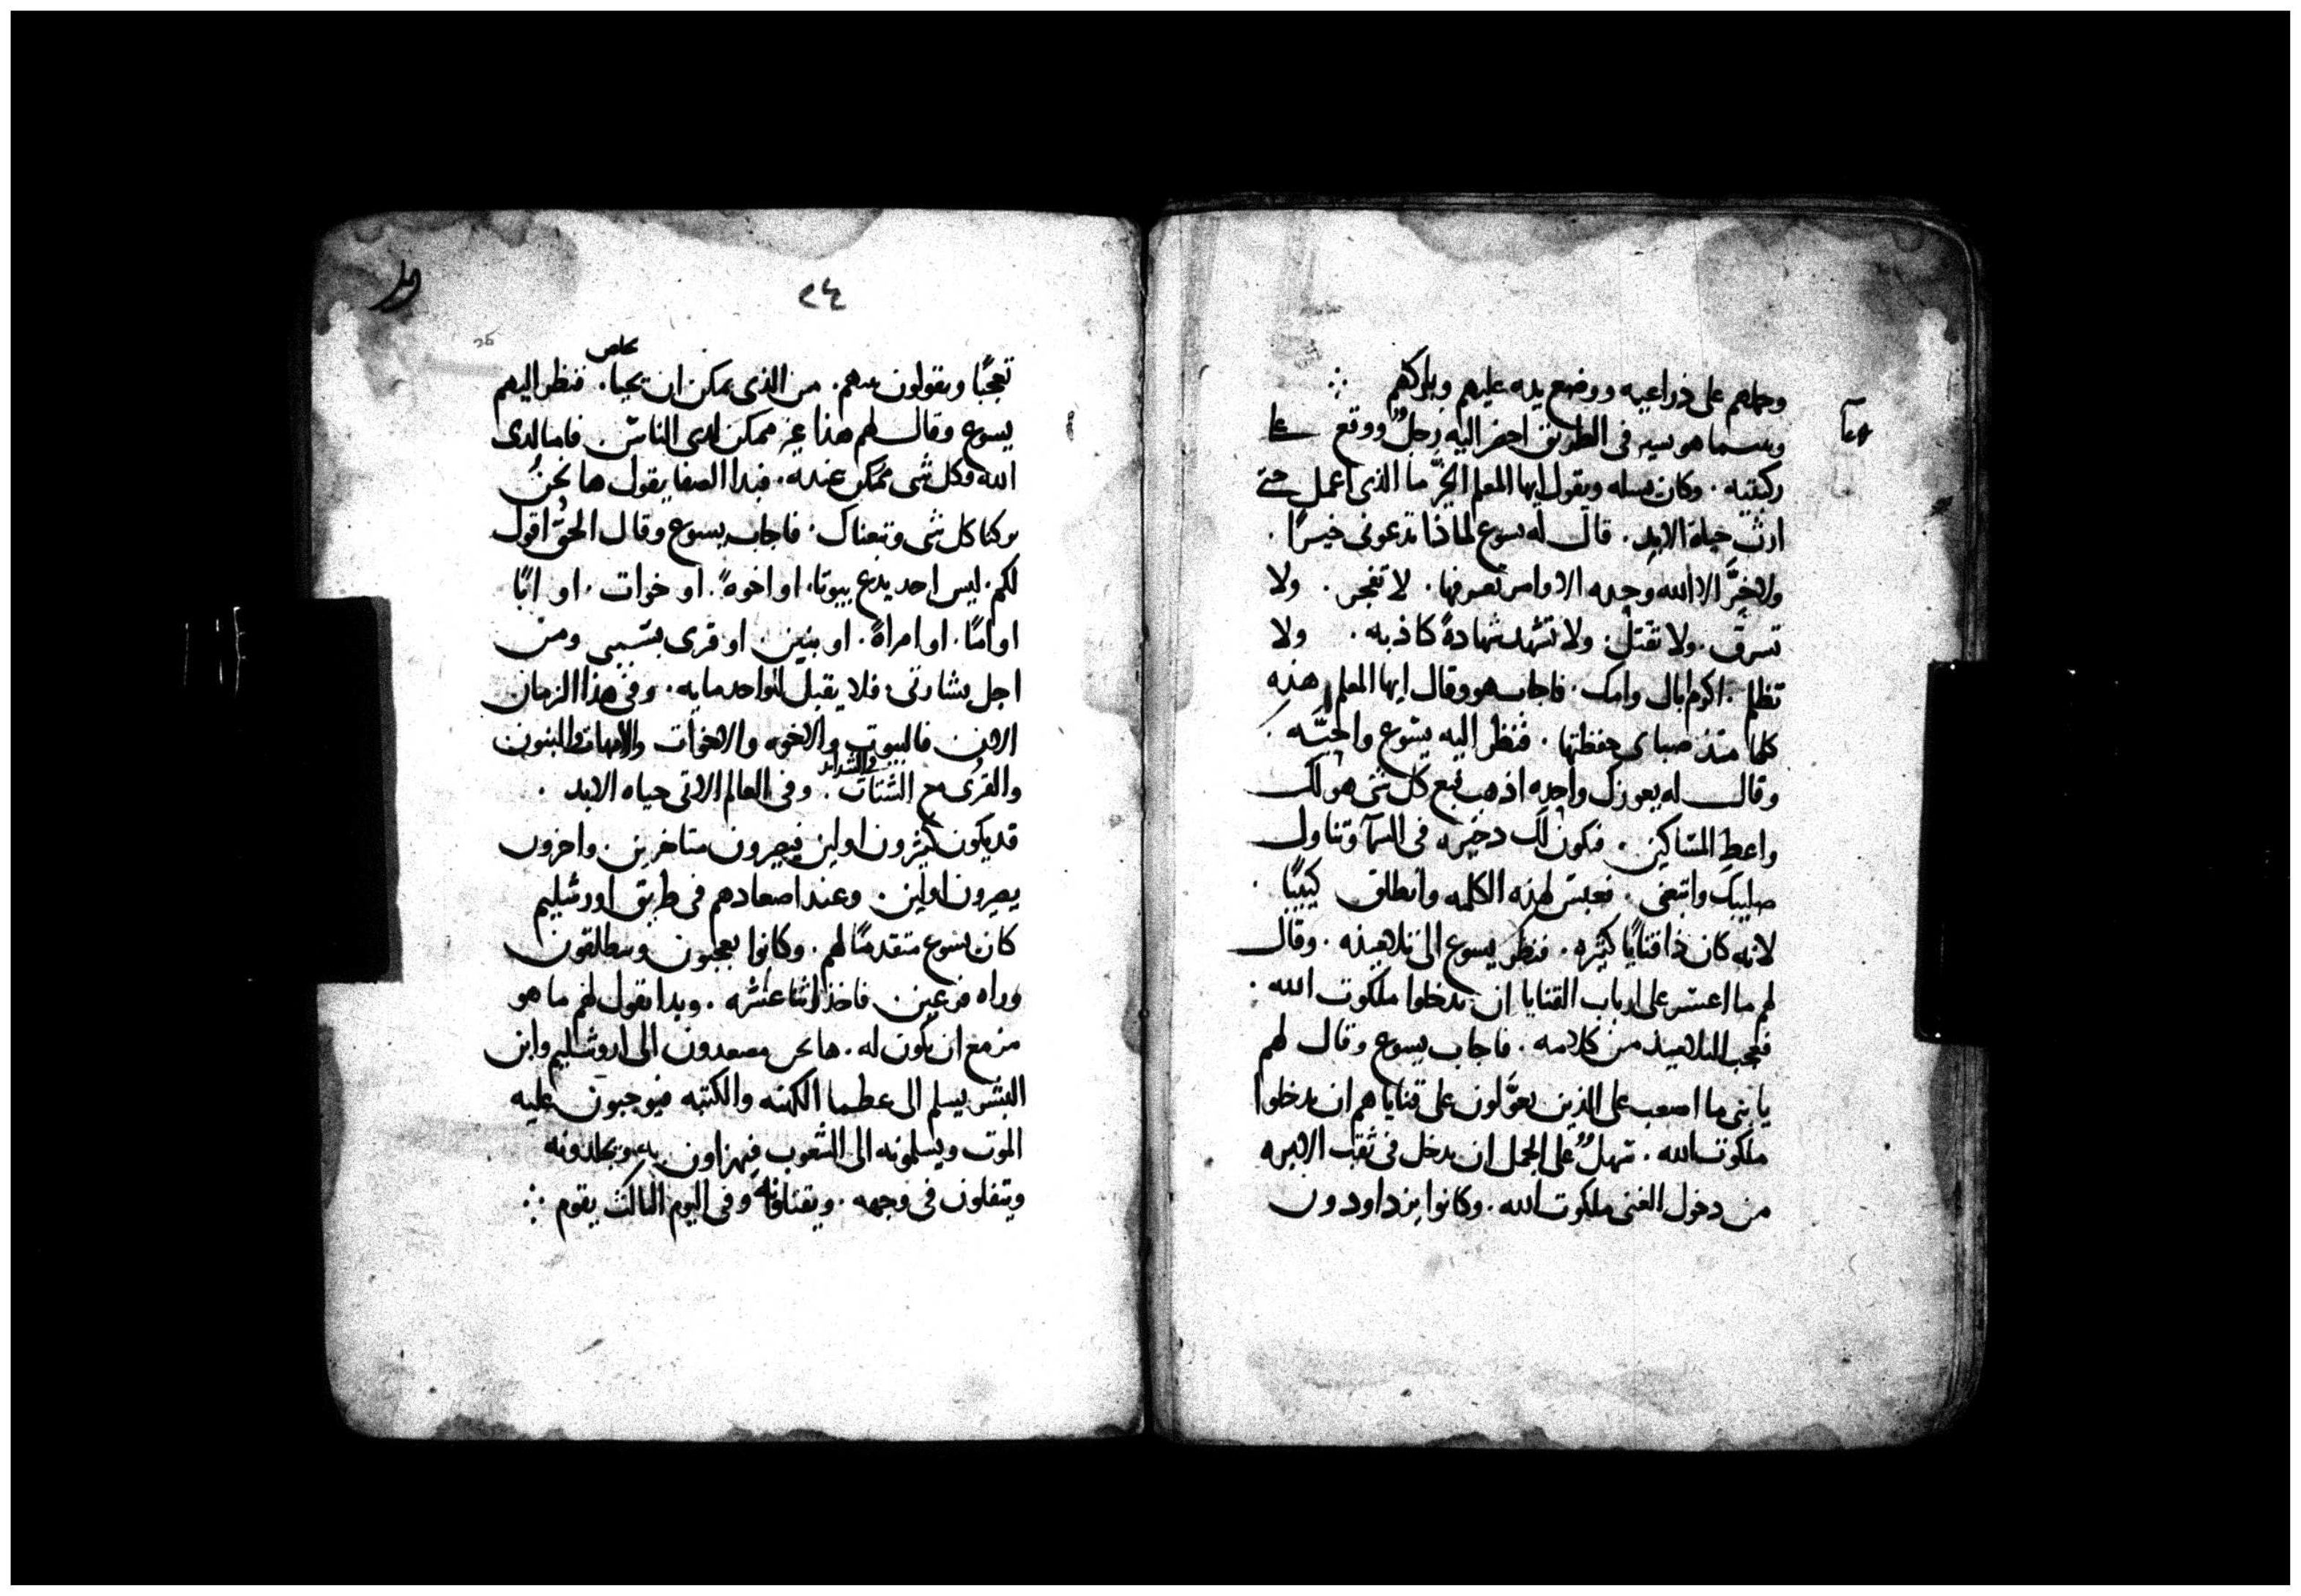 وحملهم على ذراعيه ووضع يده عليهم وباركهم
وبينما هو يسير فى الطريق احضر اليه رجلٌ ووقع على
ركبتيه . وكان يسله ويقول ايها المعلم الخيّر ما الذى اعمل حتى
ارث حياة الابد . قال له يسوع لماذا تدعونى خيرًا .
ولا خيّر الا الله وحده الاوامر تعرفها . لا تفجر . ولا
تسرق . ولا تقتل . ولا تشهد شهادةً كاذبه . ولا
تظلم . اكرم اباك وامك . فاجاب هو وقال ايها المعلم هذه
كلها منذ صباى حفظتها . فنظر اليه يسوع واحبّه .
وقال له يعوزك واحده اذهب فبع كل شى هو لك
واعطِ المساكين . فتكون لك دخيره فى السمآ وتناول
صليبك واتبعنى . فعبس لهذه الكلمه وانطلق كيبًا .
لانه كان ذا قنايا كثيره . فنظر يسوع الى تلاميذه . وقال
لهم ما اعسر على ارباب القنايا ان يدخلوا ملكوت الله .
فتعجب التلاميذ من كلامه . فاجاب يسوع وقال لهم
يا بنى ما اصعب على الذين يعوّلون على قناياهم ان يدخلوا
ملكوت الله . سهلٌ على الجمل ان يدخل فى ثقب الابره
من دخول الغنى ملكوت الله . وكانوا يزدادون
٢٤
26
يخلص
تعجبًا ويقولون بينهم . من الذى يمكن ان يحيا . فنظر اليهم
يسوع وقال لهم هذا غير ممكن لدى الناس . فاما لدى
الله فكل شى ممكن عنده . فبدا الصفا يقول ها نحن
تركنا كل شى وتبعناك . فاجاب يسوع وقال الحق اقول
لكم . ليس احد يدع بيوتا . او اخوةً . او خوات . او ابًا
او امًا . او امراةً . او بنين . او قرى بسببى ومن
اجل بشارتى فلا يقبل الواحد مايه . وفى هذا الزمان
الان فالبيوت والاخوه والاخوات والامهات والبنون
والشدايد
والقرى مع الشتات . وفى العالم الاتى حياه الابد .
قد يكون كثيرون اولين فيصيرون متاخرين . واخرون
يصيرون اولين . وعند اصعادهم فى طريق اورشليم
كان يسوع متقدمًا لهم . وكانوا يعجبون وينطلقون
وراه فزعين . فاخذ اثنا عشره . وبدا يقول لهم ما هو
مزمع ان يكون له . ها نحن مصعدون الى اروشليم وابن
البشر يسلم الى عظما الكهنه والكتبه فيوجبون عليه
الموت ويسلمونه الى الشعوب فيهزاون به ويجلدونه
ويتفلون فى وجهه . ويقتلونه وفى اليوم الثالث يقوم